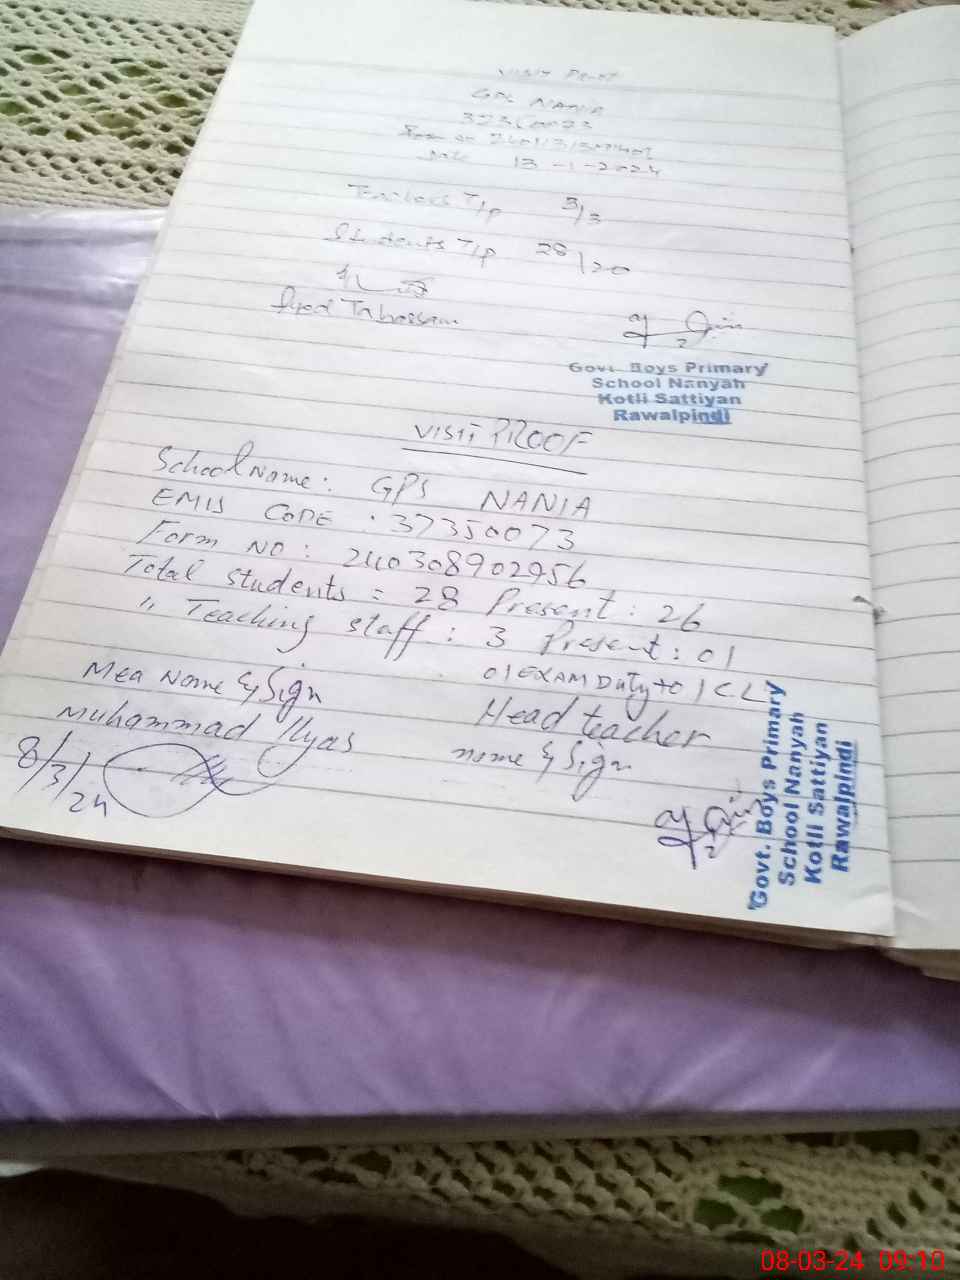 VISIT PROOF
GPS NANIA
Date 13-1-2024
Teachers T/P 3/3
Students T/P 28/20
Syed Tabassam
Govt. Boys Primary
School Nanyah
Kotli Sattiyan
Rawalpindi
VISIT PROOF
School Name: GPS NANIA
EMIS CODE: 37350073
Form NO: 240308902956
Total students = 28 Present: 26
" Teaching staff: 3 Present: 01
01 EXAM Duty to 1 CL
Mea Name & Sign
Head teacher
Muhammad Ilyas
name & Sign
8/3/24
Govt. Boys Primary
School Nanyah
Kotli Sattiyan
Rawalpindi
08-03-24 09:10